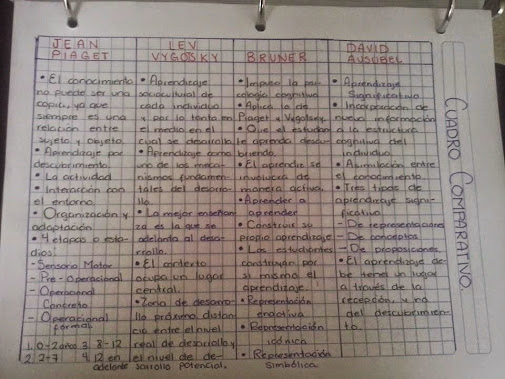 JEAN PIAGET
• El conocimiento
no puede ser una
copia, ya que
siempre es una
relacion entre
sujeto y objeto.
• Aprendizaje por
descubrimiento
• La actividad
• Interacción con
el entorno.
• Organización y
adaptación
• 4 etapas o esta-
dios:
- Sensorio Motor
- Pre-Operacional
- Operacional
Concreto
- Operacional
formal
1. 0-2 años 3. 8-12
2. 2-7 4. 12 en
adelante
LEV VYGOTSKY
• Aprendizaje
sociocultural de
cada individuo
y por lo tanto en
el medio en el
cual se desarrolla
• Aprendizaje como
uno de los meca-
nismos fundamen-
tales del desarro-
llo
• La mejor enseñan
za es la que se
adelanta al desa-
rrollo.
• El contexto
ocupa un lugar
central.
• Zona de desarro-
llo próximo distan
cia entre el nivel
real de desarrollo y
el nivel de de-
sarrollo potencial.
BRUNER
• Impulso la psi-
cología cognitiva
• Aplica lo de
Piaget y Vygotsky.
• Que el estudian
te aprenda descu-
briendo.
• El aprendiz se
involucra de
manera activa.
• Aprender a
aprender
• Construir su
propio aprendizaje
• Los estudiantes
construyan por
si mismo el
aprendizaje.
• Representación
enactiva
• Representación
icónica
• Representación
Simbólica
DAVID AUSUBEL
• Aprendizaje
Significativo
• Incorporación de
nueva información
a la estructura
cognitiva del
individuo.
• Asimilación entre
el conocimiento.
• Tres tipos de
aprendizaje signi-
ficativo.
- De representaciones
- De conceptos
- De proposiciones
• El aprendizaje de-
be tener un lugar
a través de la
recepción, y no
del descubrimien-
to.
CUADRO COMPARATIVO.